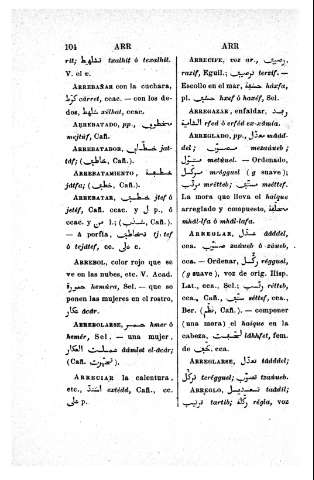 104 ARR ARR
rit; تشلهيط tsalhit ó texalhit.
V. el c.
ARREBAÑAR con la cuchara,
كرّط cárret, ccac. — con los de-
dos, xélhat, ccac.
ARREBATADO, pp., مخطوف
mejtúf, Cañ.
ARREBATADOR, خطّاف jat-
táf; (خاطف, Cañ.).
ARREBATAMIENTO, خطفة
játfa; (Cañ.).
ARREBATAR, خطف jtéf ó
jetéf, Cañ. ccac. y ل p., ó
ccac. y من l.; (Cañ.).
— á porfía, تخاطف tj. tef
ó tejátef, cc. على c.
ARREBOL, color rojo que se
ve en las nubes, etc. V. Acad.
حمورة hemúra, Sel. — que se
ponen las mujeres en el rostro,
عكار ácár.
ARREBOLARSE, حمر hmer ó
hemér, Sel. — una mujer,
عملت العكار âámlet el-âcár;
(Cañ.).
ARRECIAR la calentura,
etc., اشتدّ extédd, Cañ., cc.
على p.
ARRECIFE, voz ar., رصيف
razíf, Eguíl.; ترصيف terzíf. —
Escollo en el mar, حافة háxfa,
pl. hxef ó haxéf, Sel.
ARREHAZAR, enfaldar, رفد
الشاية rfed ó erféd ex-xáuia.
ARREGLADO, pp., معدّل mâád-
del; mezaúueb;
metáuel. — Ordenado,
مركّل mréggual (g suave);
مرتّب mrétteb; مستّف mesttef.
La mora que lleva el haique
arreglado y compuesto,
mhál-lfa ó mhál-lafa.
ARREGLAR, عدّل âáddel,
cca. صوّب zaúueb ó záueb,
cca. — Ordenar, ركّل réggual,
(g suave), voz de orig. Hisp.
Lat., cca., Sel.; رتّب rétteb,
cca., Cañ., ستّف séttef, cca.,
Ber. (نظم, Cañ.). — componer
(una mora) el haique en la
cabeza, láhhfet, fem.
de cca.
ARREGLARSE, تعدّل tâáddel;
تركّل teréggual; تصوّب tzaúueb.
ARREGLO, تعديل taâdil;
ترتيب tartib; ركلة régla, voz